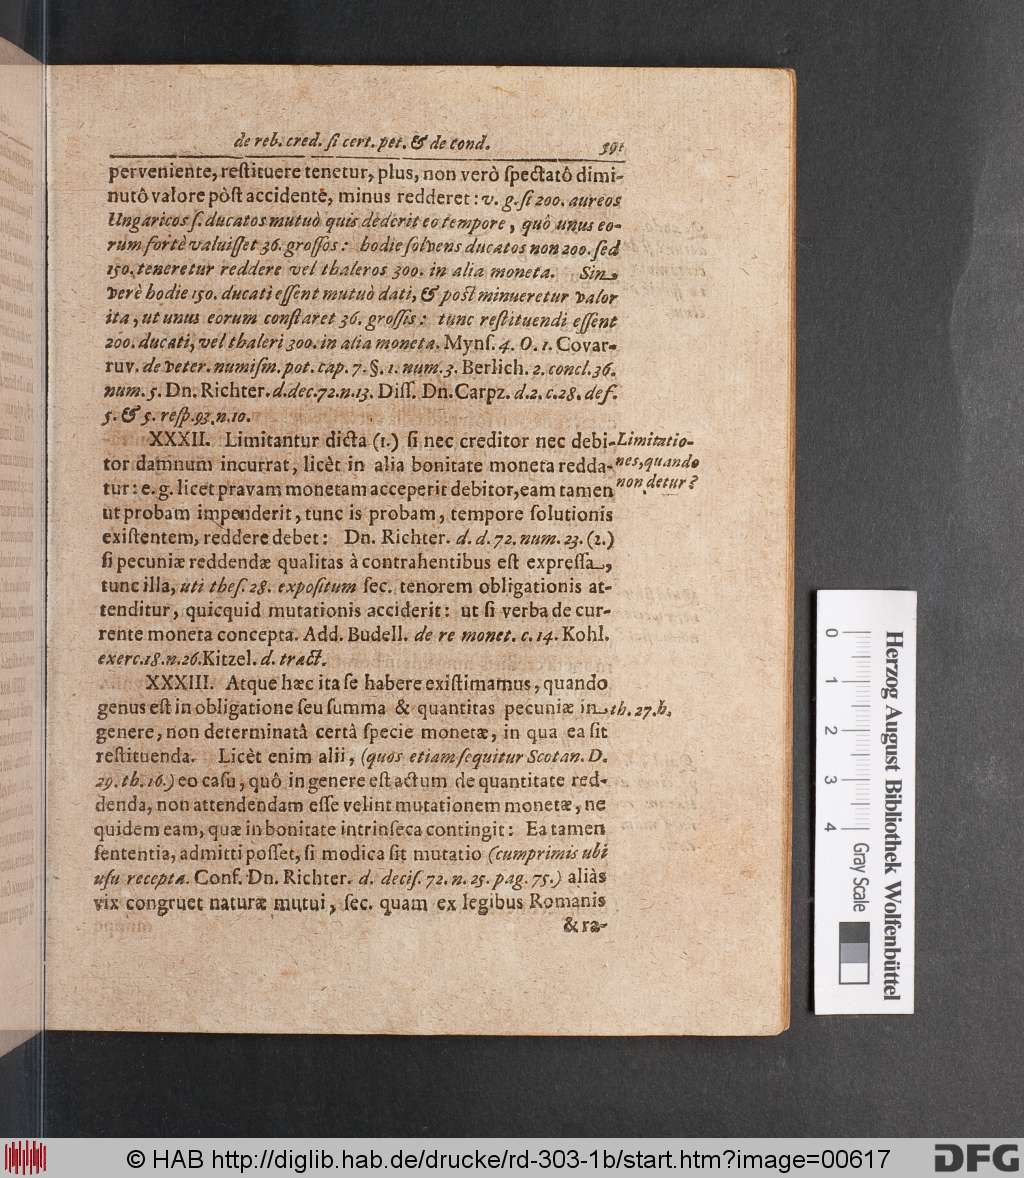 de reb. cred. ſi cert. pet. & de cond. 591
perveniente, reſtituere tenetur, plus, non verò ſpectatô dimi-
nutô valore pòſt accidente, minus redderet: v. g. ſi 200. aureos
Ungaricos ſ. ducatos mutuò quis dederit eo tempore, quô unus eo-
rum fortè valuiſſet 36. groſſos: hodie ſolvens ducatos non 200. ſed
150. teneretur reddere vel thaleros 300. in alia moneta. Sin
verè hodie 150. ducati eſſent mutuò dati, & poſt minueretur valor
ita, ut unus eorum conſtaret 36. groſſis: tunc reſtituendi eſſent
200. ducati, vel thaleri 300. in alia moneta. Mynſ. 4. O. 1. Covar-
ruv. de veter. numiſm. pot. cap. 7. §. 1. num. 3. Berlich. 2. concl. 36.
num. 5. Dn. Richter. d. dec. 72. n. 13. Diſſ. Dn. Carpz. d. 2. c. 28. def.
5. & 5. reſp. 93. n. 10.
XXXII. Limitantur dicta (1.) ſi nec creditor nec debi-
tor damnum incurrat, licèt in alia bonitate moneta redda-
tur: e. g. licet pravam monetam acceperit debitor, eam tamen
ut probam impenderit, tunc is probam, tempore ſolutionis
exiſtentem, reddere debet: Dn. Richter. d. d. 72. num. 23. (2.)
ſi pecuniæ reddendæ qualitas à contrahentibus eſt expreſſa,
tunc illa, uti theſ. 28. expoſitum ſec. tenorem obligationis at-
tenditur, quicquid mutationis acciderit: ut ſi verba de cur-
rente moneta concepta. Add. Budell. de re monet. c. 14. Kohl.
exerc. 18. n. 26. Kitzel. d. tract.
Limitatio-
nes, quando
non detur?
XXXIII. Atque hæc ita ſe habere exiſtimamus, quando
genus eſt in obligatione ſeu ſumma & quantitas pecuniæ in
genere, non determinatâ certâ ſpecie monetæ, in qua ea ſit
reſtituenda. Licèt enim alii, (quos etiam ſequitur Scotan. D.
29. th. 16.) eo caſu, quô in genere eſt actum de quantitate red-
denda, non attendendam eſſe velint mutationem monetæ, ne
quidem eam, quæ in bonitate intrinſeca contingit: Ea tamen
ſententia, admitti poſſet, ſi modica ſit mutatio (cumprimis ubi
uſu recepta. Conf. Dn. Richter. d. deciſ. 72. n. 25. pag. 75.) aliàs
vix congruet naturæ mutui, ſec. quam ex legibus Romanis
& ra-
th. 27. h.
0 1 2 3 4
Gray Scale
Herzog August Bibliothek Wolfenbüttel
© HAB http://diglib.hab.de/drucke/rd-303-1b/start.htm?image=00617
DFG